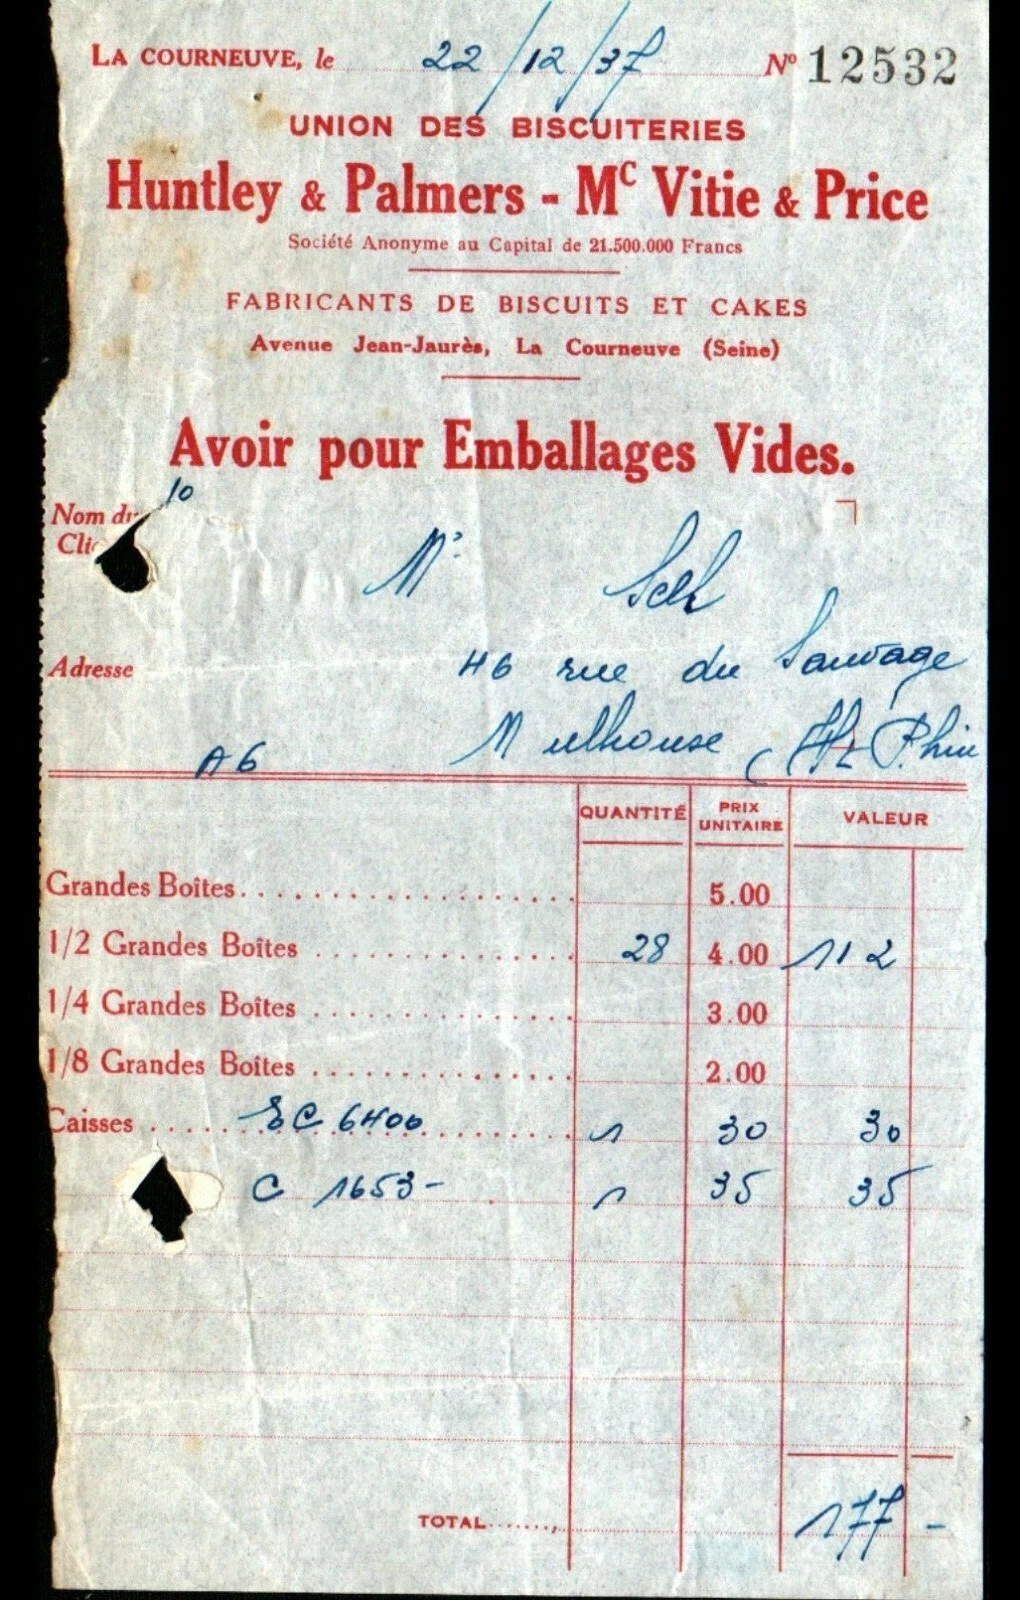 LA COURNEUVE, le 22/12/37 Nº 12532
UNION DES BISCUITERIES
Huntley & Palmers - Mc Vitie & Price
Société Anonyme au Capital de 21.500.000 Francs
FABRICANTS DE BISCUITS ET CAKES
Avenue Jean-Jaurès, La Courneuve (Seine)
Avoir pour Emballages Vides.
10
Nom du
Cli
Mr
Adresse 46 rue du Sauvage
Mulhouse (Ht Rhin
A6
QUANTITÉ PRIX UNITAIRE VALEUR
Grandes Boîtes 5.00
1/2 Grandes Boîtes 28 4.00 112
1/4 Grandes Boîtes 3.00
1/8 Grandes Boîtes 2.00
Caisses 6400 1 30 30
C 1653- 1 35 35
TOTAL 177 -